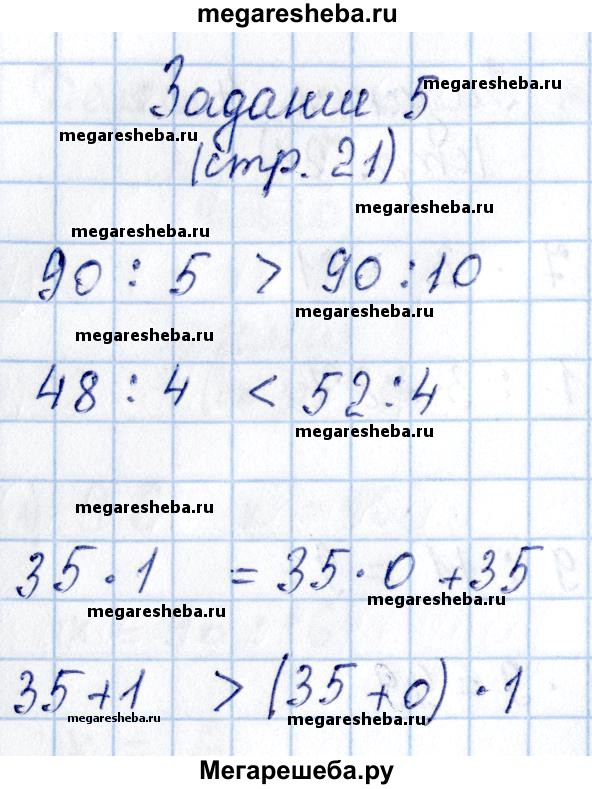 megaresheba.ru
Задание 5
megaresheba.ru
megaresheba.ru
(стр. 21)
megaresheba.ru
megaresheba.ru
90 : 5 > 90 : 10
megaresheba.ru
megaresheba.ru
48 : 4 < 52 : 4
megaresheba.ru
megaresheba.ru
35 · 1 = 35 · 0 + 35
megaresheba.ru
megaresheba.ru
35 + 1 > (35 + 0) · 1
megaresheba.ru
megaresheba.ru
Мегарешеба.ру